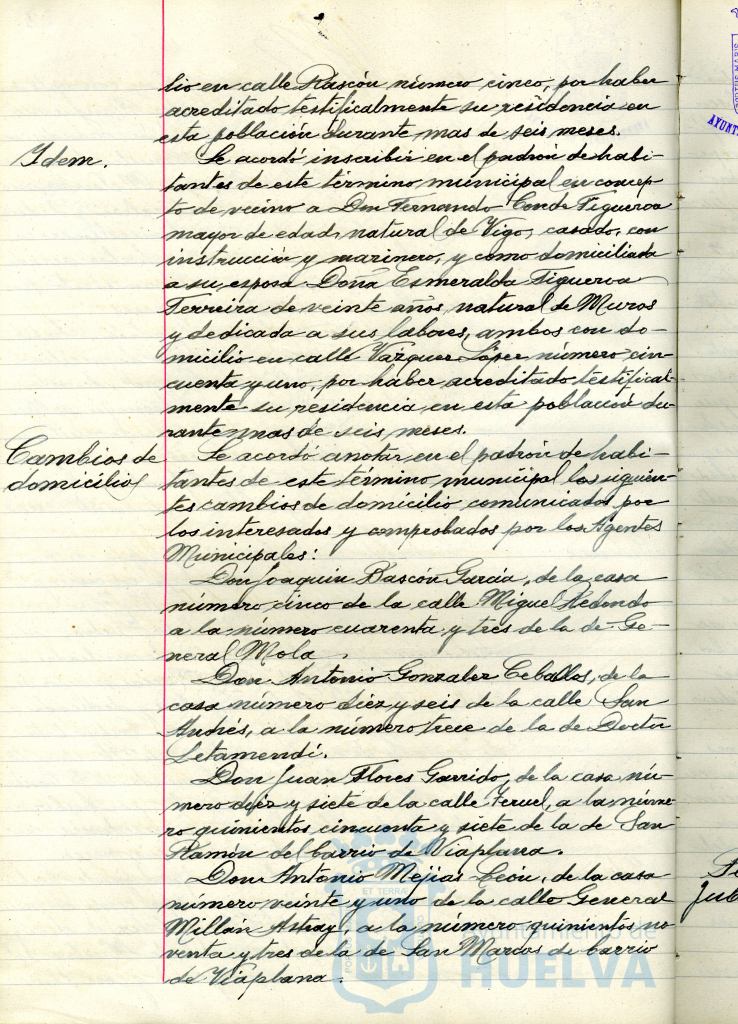 lio en calle Rascón número cinco, por haber
acreditado testificalmente su residencia en
esta población durante mas de seis meses.
Idem.
Se acordó inscribir en el padrón de habi-
tantes de este término municipal en concep-
to de vecino a Don Fernando Conde Figueroa
mayor de edad, natural de Vigo, casado, con
instrucción y marinero, y como domiciliada
a su esposa Doña Esmeralda Figueroa
Ferreira de veinte años, natural de Muros
y dedicada a sus labores, ambos con do-
micilio en calle Vazquez López número cin-
cuenta y uno, por haber acreditado testifical-
mente su residencia en esta población du-
rante mas de seis meses.
Cambios de
domicilio
Se acordó anotar en el padrón de habi-
tantes de este término municipal los siguien-
tes cambios de domicilio comunicados por
los interesados y comprobados por los Agentes
Municipales:
Don Joaquin Bascón Garcia, de la casa
número cinco de la calle Miguel Redondo
a la número cuarenta y tres de la de Ge-
neral Mola.
Don Antonio Gonzalez Ceballos, de la
casa número diez y seis de la calle San
Andrés, a la número trece de la de Doctor
Letamendi.
Don Juan Flores Garrido, de la casa nú-
mero diez y siete de la calle Teruel, a la núme-
ro quinientos cincuenta y siete de la de San
Ramón del barrio de Viaplana.
Don Antonio Mejias Leon, de la casa
número veinte y uno de la calle General
Millán Astray, a la número quinientos no
venta y tres de la de San Marcos de barrio
de Viaplana.
ET TERRA
Ayuntamiento de
HUELVA